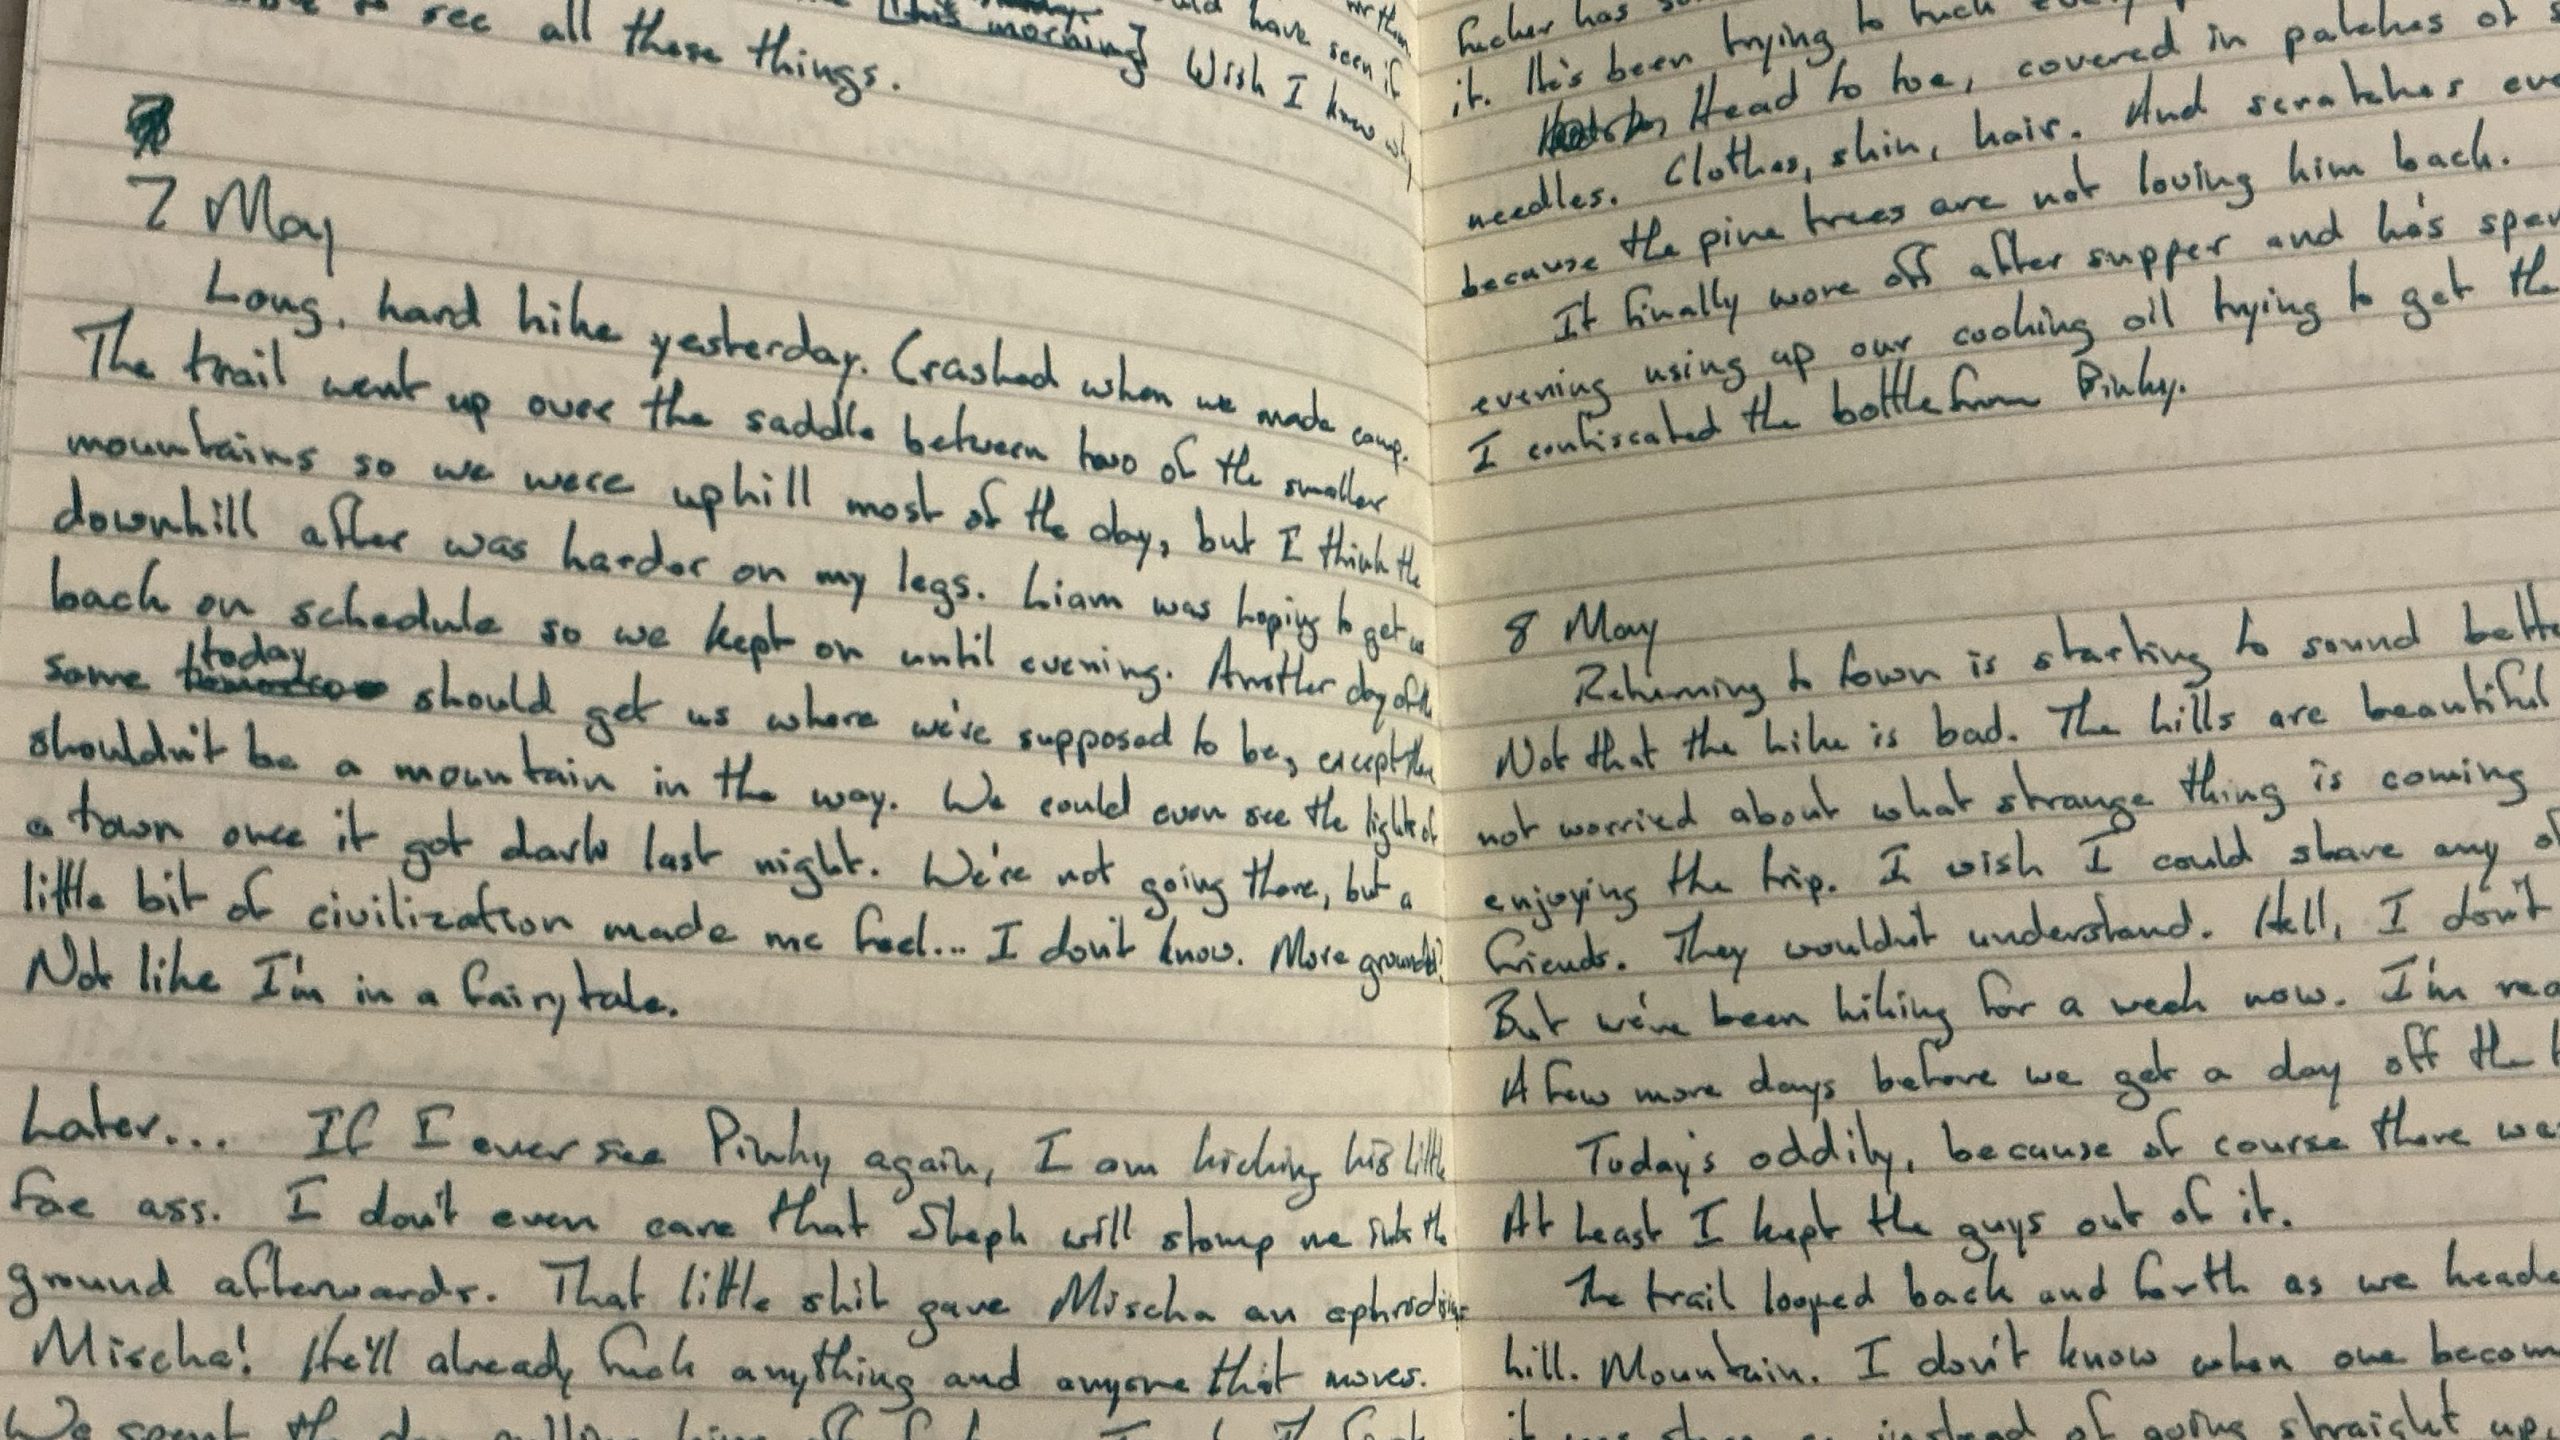 to see all these things.
[this morning] Wish I knew why
have seen it
7 May
Long, hard hike yesterday. Crashed when we made camp.
The trail went up over the saddle between two of the smaller
mountains so we were uphill most of the day, but I think the
downhill after was harder on my legs. Liam was hoping to get us
back on schedule so we kept on until evening. Another day of the
same today should get us where we're supposed to be, except there
shouldn't be a mountain in the way. We could even see the lights of
a town once it got dark last night. We're not going there, but a
little bit of civilization made me feel... I don't know. More grounded?
Not like I'm in a fairytale.
Later... If I ever see Pinky again, I am kicking his little
fae ass. I don't even care that Steph will stomp me into the
ground afterwards. That little shit gave Mischa an aphrodisiac
Mischa! He'll already fuck anything and anyone that moves.
We spent the day pulling him off of
fucker has
it. He's been trying to fuck
Head to toe, covered in patches of
needles. Clothes, skin, hair. And scratches
because the pine trees are not loving him back.
It finally wore off after supper and he's
evening using up our cooking oil trying to get the
I confiscated the bottle from Pinky.
8 May
Returning to town is starting to sound
Not that the hike is bad. The hills are beautiful
not worried about what strange thing is coming
enjoying the trip. I wish I could share any of
friends. They wouldn't understand. Hell, I don't
But we've been hiking for a week now. I'm
A few more days before we get a day off the
Today's oddity, because of course there
At least I kept the guys out of it.
The trail looped back and forth as we
hill. Mountain. I don't know when one
instead of going straight up,